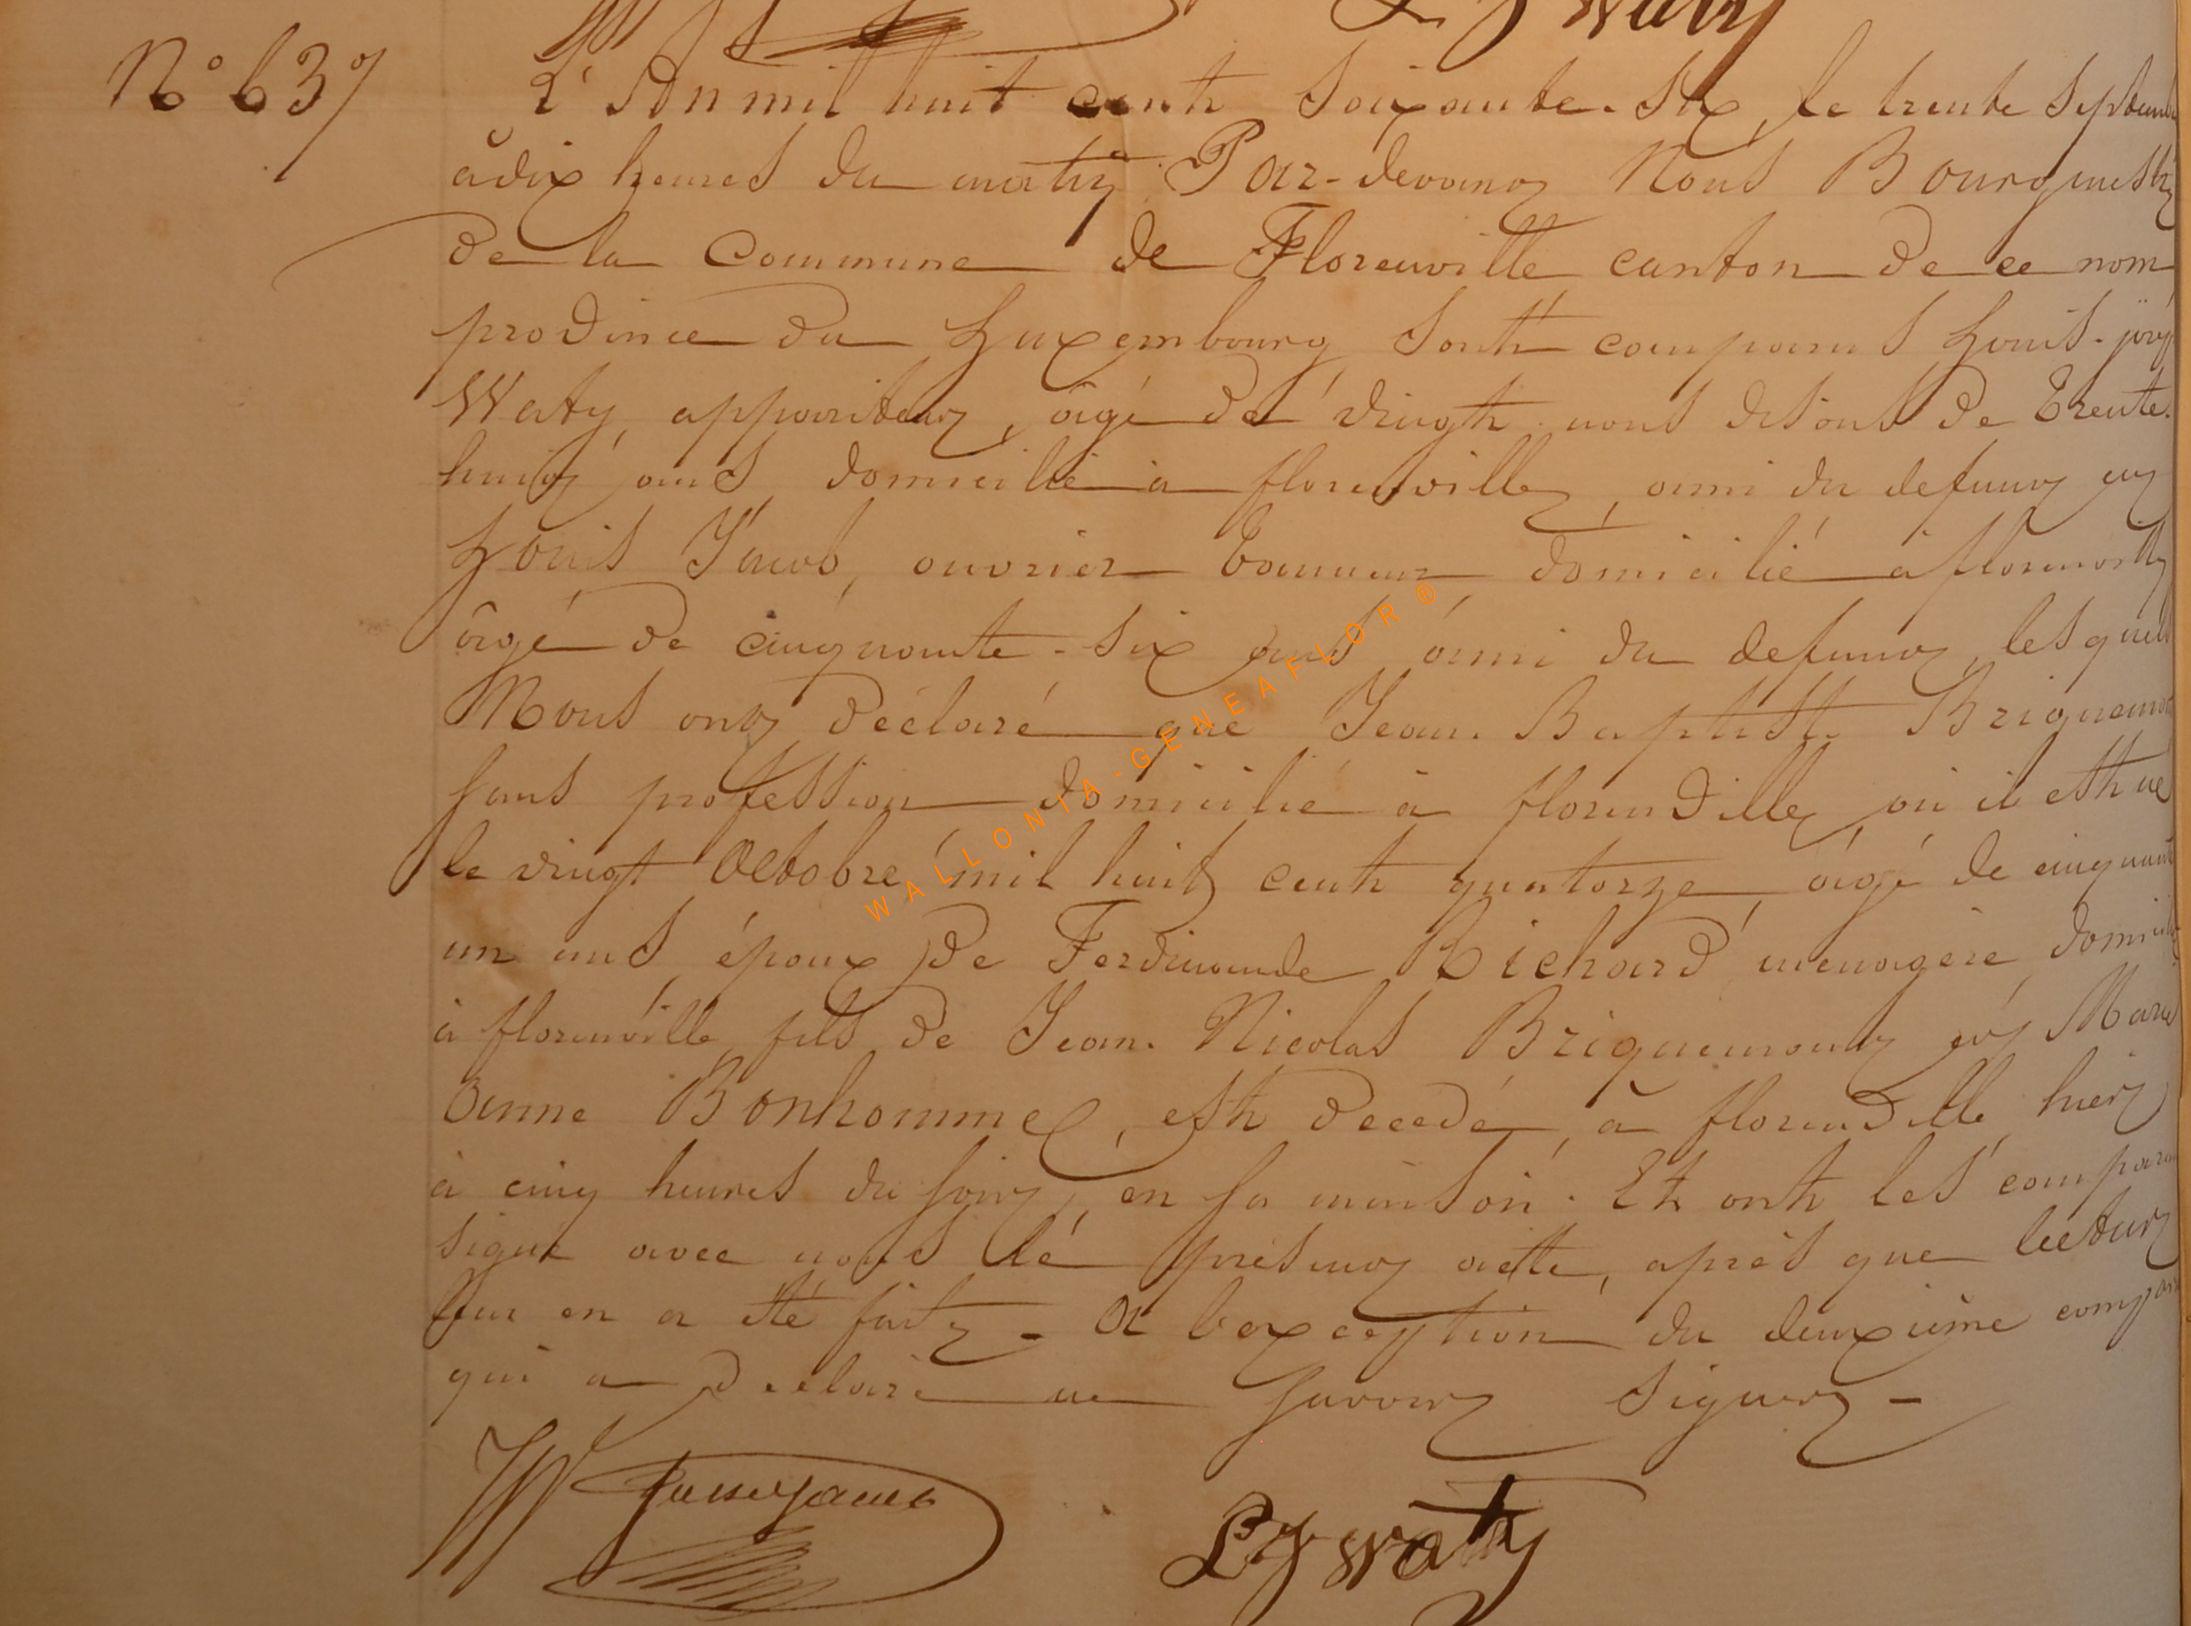 L J Waty
N° 637
L'An mil huit cent soixante-six, le trente Septembre
à dix heures du matin Par-devant Nous Bourgmestre
de la Commune de Florenville canton de ce nom,
province du Luxembourg, sont comparus Louis-
Waty, appariteur, âgé de vingt nous disons de trente-
huit ans, domicilié à florenville, ami du defunt et
Louis Jacob, ouvrier tanneur, domicilié à florenville
âgé de cinquante-six ans, ami du defunt, lesquels
Nous ont déclaré que Jean Baptiste Briquemont
sans profession domicilié à florenville, où il est né
le vingt Octobre mil huit cent quatorze, âgé de cinquante
un ans, époux de Ferdinande Richard ménagère, domiciliée
à florenville, fils de Jean Nicolas Briquemont et Marie
Anne Bonhomme, est décédé, à florenville, hier
à cinq heures du soir, en sa maison. Et ont les comparants
signé avec nous le présent acte, après que lecture
leur en a été faite - à l'exception du deuxième comparant
qui a déclaré ne savoir signer -
L J Waty
WALLONIA-GENEAFLOR ®